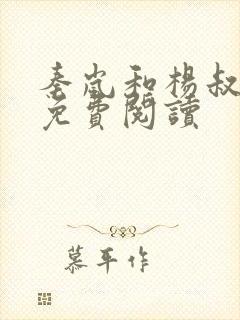 秦岚和楊叔
免費閱讀
慕平作